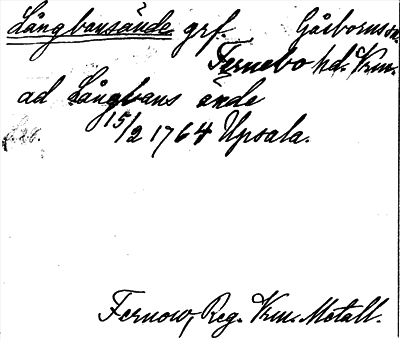 Långbansände grf. Gåsborns sn.
Fernebo hd. Vrm.
ad Långbans ände
15/2 1764 Upsala.
Fernow, Reg. Vrm. Metall.